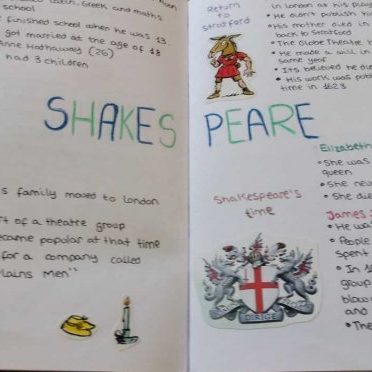 Latin, Greek, and maths
school
finished school when he was 13
got married at the age of 18
Anne Hathaway (26)
had 3 children
SHAKES
s family moved to London
rt of a theatre group
ecame popular at that time
for a company called
lains Men"
Return
to
Stratford
in London as his play
He didn't publish
His mother died in
back to Stratford
The Globe Theatre
He made a will in
same year
Its believed he die
His work was pub
time in 1623
PEARE
Shakespeare's
time
DIRIGE
Elizabeth
She was
queen
She nev
She die
James
He wa
People
spent
In 1
group
blow
and
The